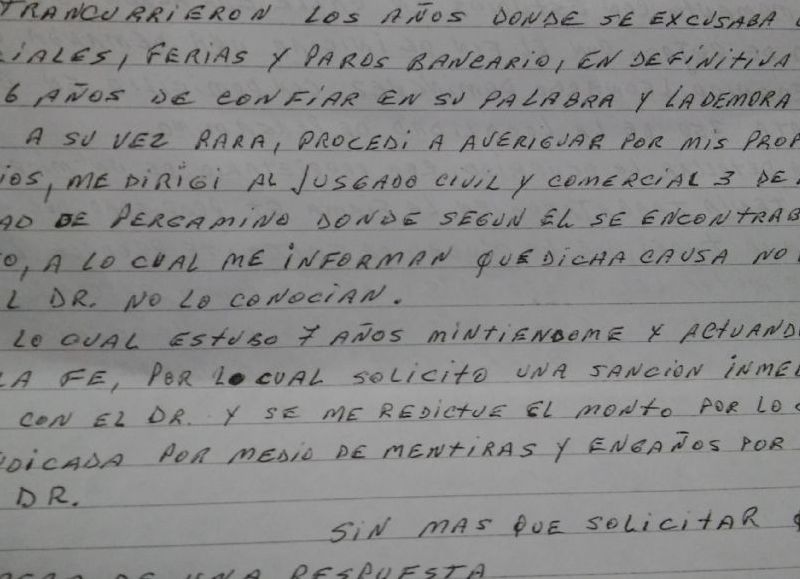 TRANCURRIERON LOS AÑOS DONDE SE EXCUSABA
IALES, FERIAS Y PAROS BANCARIO, EN DEFINITIVA
6 AÑOS DE CONFIAR EN SU PALABRA Y LA DEMORA
A SU VEZ RARA, PROCEDI A AVERIGUAR POR MIS PROP
IOS, ME DIRIGI AL JUSGADO CIVIL Y COMERCIAL 3 DE
AD DE PERGAMINO DONDE SEGUN EL SE ENCONTRAB
O, A LO CUAL ME INFORMAN QUE DICHA CAUSA NO
L DR. NO LO CONOCIAN.
LO CUAL ESTUBO 7 AÑOS MINTIENDOME Y ACTUAND
LA FE, POR LO CUAL SOLICITO UNA SANCION INME
CON EL DR. Y SE ME REDICTUE EL MONTO POR LO
UDICADA POR MEDIO DE MENTIRAS Y ENGAÑOS POR
DR.
SIN MAS QUE SOLICITAR
PERO DE UNA RESPUESTA